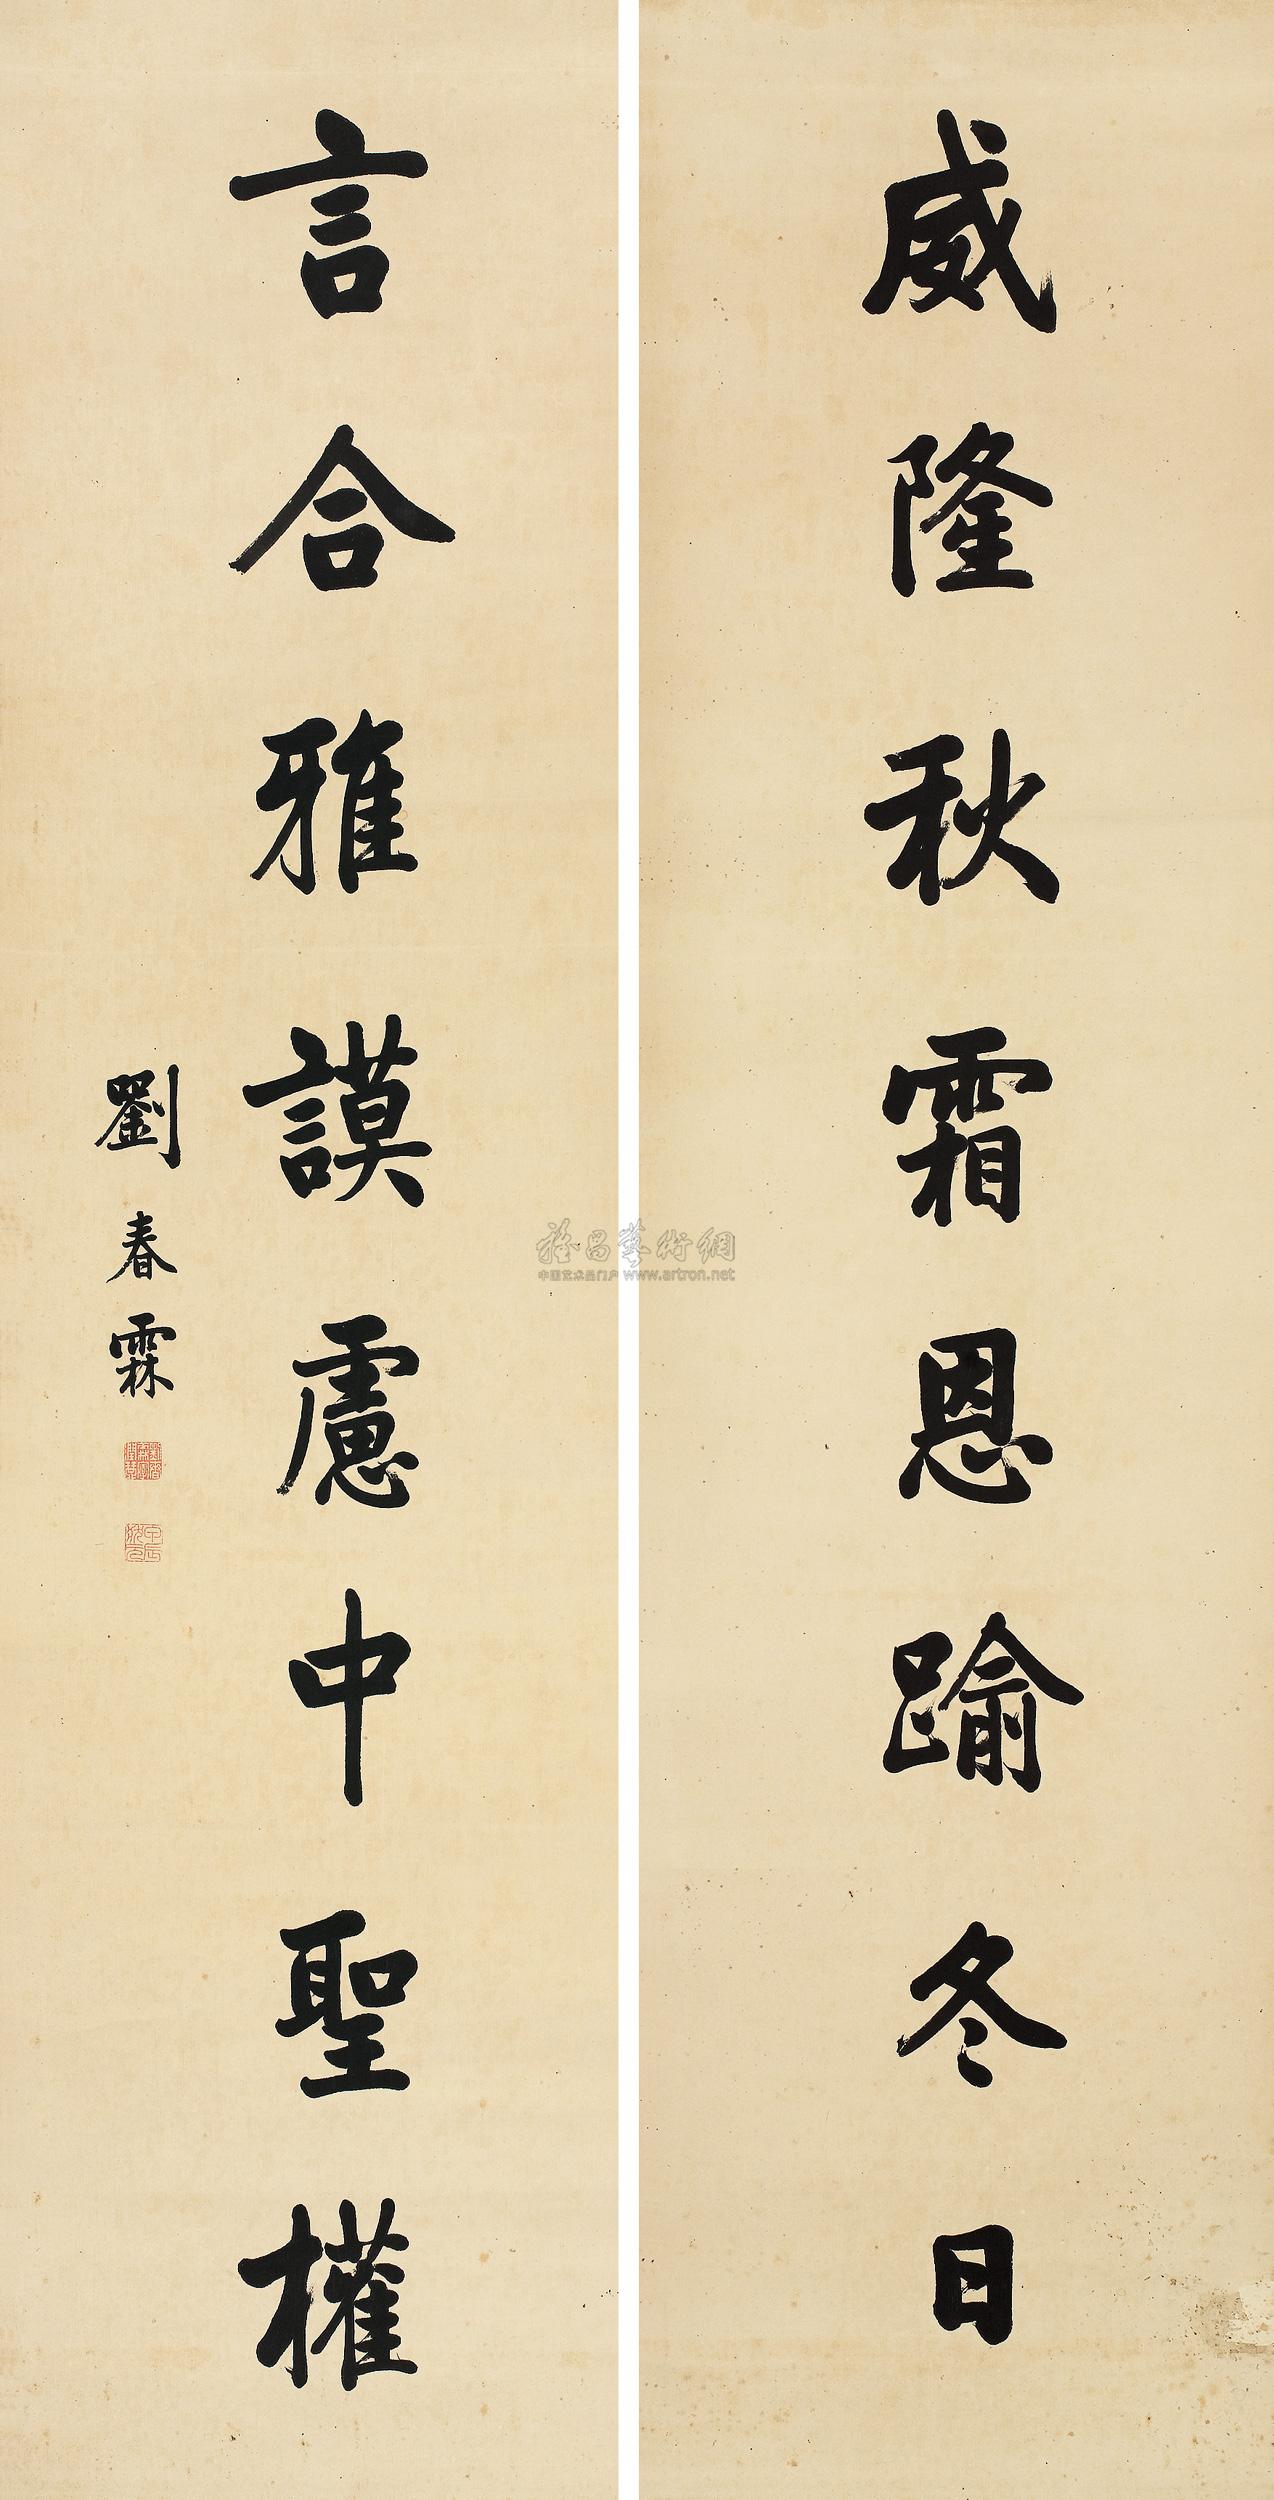 威隆秋霜恩踰冬日
言合雅謨慮中聖權
劉春霖
甲辰狀元
雅昌藝術網
中国艺术品门户 www.artron.net